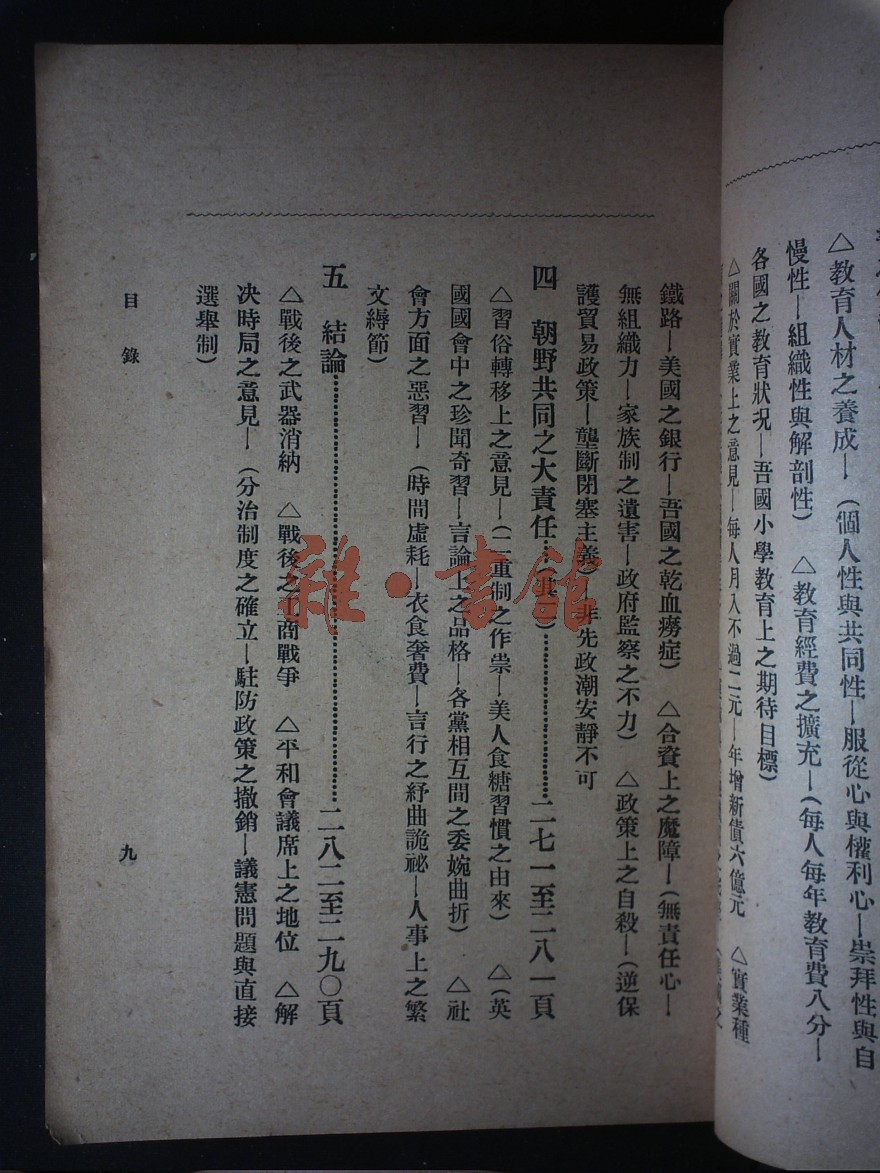 △教育人材之養成—（個人性與共同性—服從心與權利心—崇拜性與自
慢性—組織性與解剖性）　△教育經費之擴充—（每人每年教育費八分—
各國之教育狀況—吾國小學教育上之期待目標）
△關於實業上之意見—每人月入不過二元—年增新債六億元　△實業種
鐵路—美國之銀行—吾國之乾血癆症）　△合資上之魔障—（無責任心—
無組織力—家族制之遺害—政府監察之不力）　△政策上之自殺—（逆保
護貿易政策—壟斷閉塞主義）非先政潮安靜不可
四　朝野共同之大責任⋯⋯二七一至二八一頁
△習俗轉移上之意見—（二重制之作祟—美人食糖習慣之由來）　△（英
國國會中之珍聞奇習—言論上之品格—各黨相互間之委婉曲折）　△社
會方面之惡習—（時間虛耗—衣食奢費—言行之紓曲詭祕—人事上之繁
文縟節）
五　結論⋯⋯二八二至二九〇頁
△戰後之武器消納　△戰後之工商戰爭　△平和會議席上之地位　△解
决時局之意見—（分治制度之確立—駐防政策之撤銷—議憲問題與直接
選舉制）
目錄
九
雜·書館